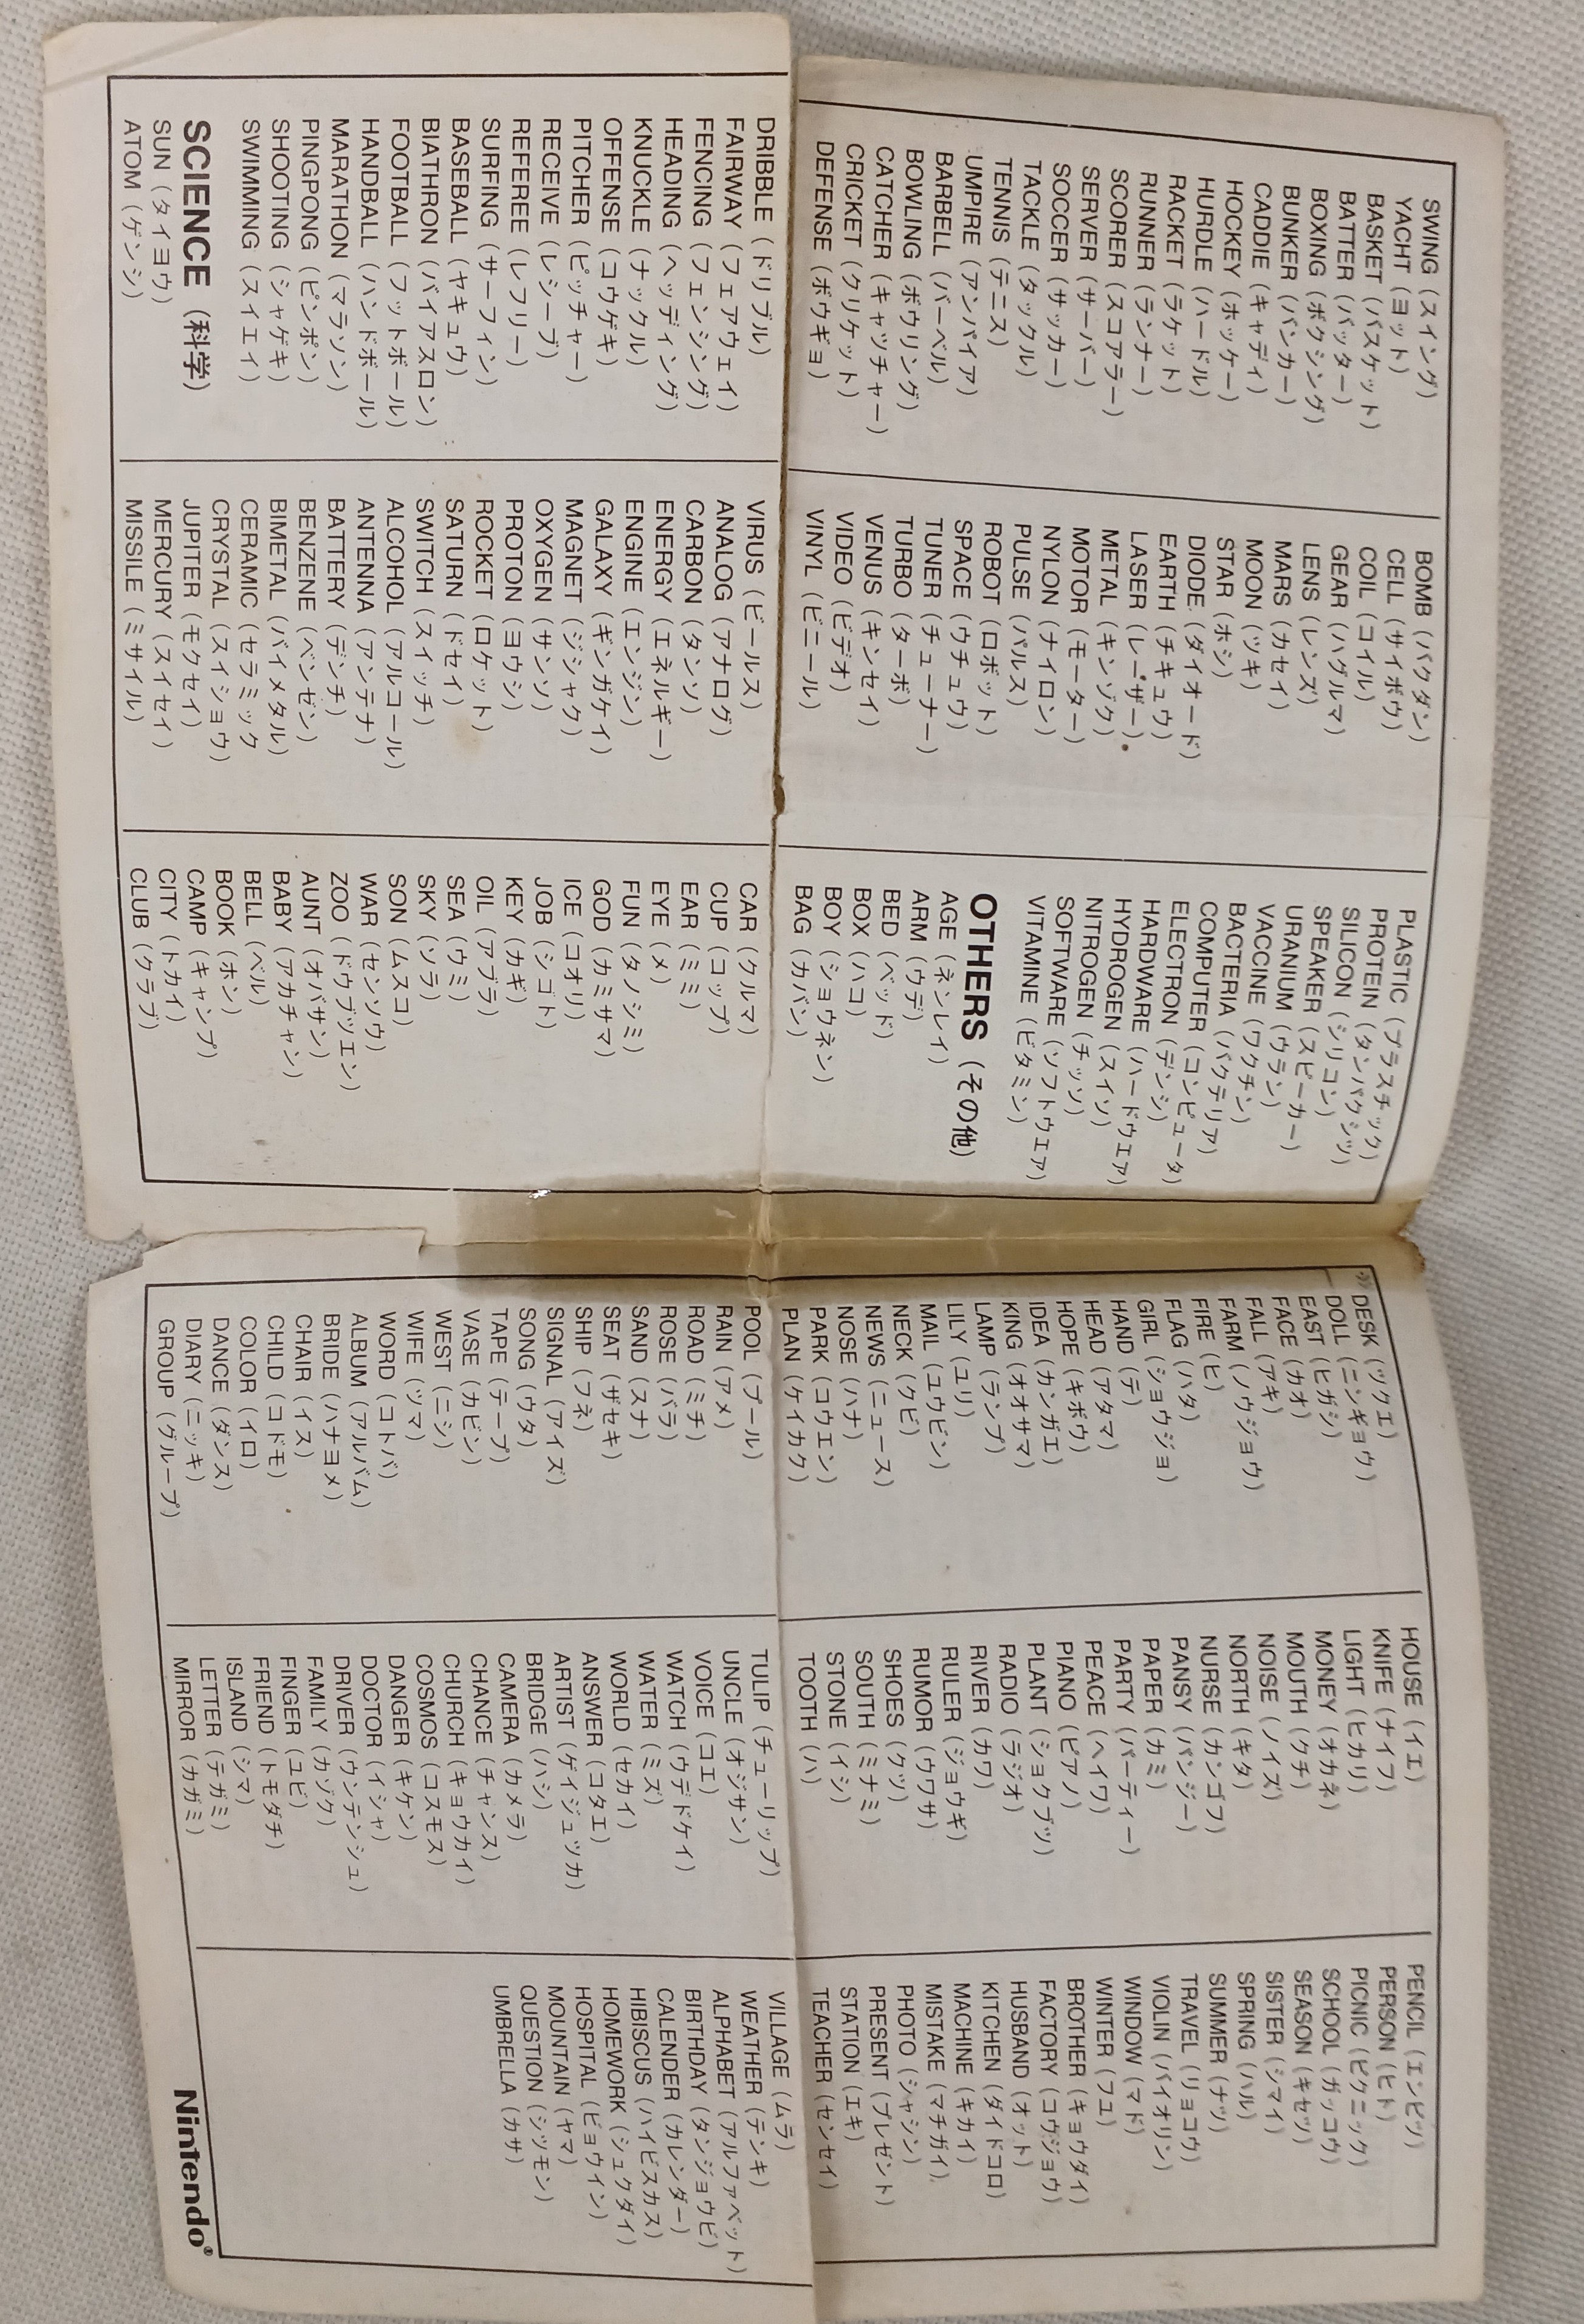 SWING (スイング)
YACHT (ヨット)
BASKET (バスケット)
BATTER (バッター)
BOXING (ボクシング)
BUNKER (バンカー)
CADDIE (キャディ)
HOCKEY (ホッケー)
HURDLE (ハードル)
RACKET (ラケット)
RUNNER (ランナー)
SCORER (スコアラー)
SERVER (サーバー)
SOCCER (サッカー)
TACKLE (タックル)
TENNIS (テニス)
UMPIRE (アンパイア)
BARBELL (バーベル)
BOWLING (ボウリング)
CATCHER (キャッチャー)
CRICKET (クリケット)
DEFENSE (ボウギョ)
DRIBBLE (ドリブル)
FAIRWAY (フェアウェイ)
FENCING (フェンシング)
HEADING (ヘッディング)
KNUCKLE (ナックル)
OFFENSE (コウゲキ)
PITCHER (ピッチャー)
RECEIVE (レシーブ)
REFEREE (レフリー)
SURFING (サーフィン)
BASEBALL (ヤキュウ)
BIATHRON (バイアスロン)
FOOTBALL (フットボール)
HANDBALL (ハンドボール)
MARATHON (マラソン)
PINGPONG (ピンポン)
SHOOTING (シャゲキ)
SWIMMING (スイエイ)
SCIENCE (科学)
SUN (タイヨウ)
ATOM (ゲンシ)
BOMB (バクダン)
CELL (サイボウ)
COIL (コイル)
GEAR (ハグルマ)
LENS (レンズ)
MARS (カセイ)
MOON (ツキ)
STAR (ホシ)
DIODE (ダイオード)
EARTH (チキュウ)
LASER (レーザー)
METAL (キンゾク)
MOTOR (モーター)
NYLON (ナイロン)
PULSE (パルス)
ROBOT (ロボット)
SPACE (ウチュウ)
TUNER (チューナー)
TURBO (ターボ)
VENUS (キンセイ)
VIDEO (ビデオ)
VINYL (ビニール)
VIRUS (ビールス)
ANALOG (アナログ)
CARBON (タンソ)
ENERGY (エネルギー)
ENGINE (エンジン)
GALAXY (ギンガケイ)
MAGNET (ジシャク)
OXYGEN (サンソ)
PROTON (ヨウシ)
ROCKET (ロケット)
SATURN (ドセイ)
SWITCH (スイッチ)
ALCOHOL (アルコール)
ANTENNA (アンテナ)
BATTERY (デンチ)
BENZENE (ベンゼン)
BIMETAL (バイメタル)
CERAMIC (セラミック
CRYSTAL (スイショウ)
JUPITER (モクセイ)
MERCURY (スイセイ)
MISSILE (ミサイル)
PLASTIC (プラスチック)
PROTEIN (タンパクシツ)
SILICON (シリコン)
SPEAKER (スピーカー)
URANIUM (ウラン)
VACCINE (ワクチン)
BACTERIA (バクテリア)
COMPUTER (コンピュータ)
ELECTRON (デンシ)
HARDWARE (ハードウエア)
HYDROGEN (スイソ)
NITROGEN (チッソ)
SOFTWARE (ソフトウエア)
VITAMINE (ビタミン)
OTHERS (その他)
AGE (ネンレイ)
ARM (ウデ)
BED (ベッド)
BOX (ハコ)
BOY (ショウネン)
BAG (カバン)
CAR (クルマ)
CUP (コップ)
EAR (ミミ)
EYE (メ)
FUN (タノシミ)
GOD (カミサマ)
ICE (コオリ)
JOB (シゴト)
KEY (カギ)
OIL (アブラ)
SEA (ウミ)
SKY (ソラ)
SON (ムスコ)
WAR (センソウ)
ZOO (ドウブツエン)
AUNT (オバサン)
BABY (アカチャン)
BELL (ベル)
BOOK (ホン)
CAMP (キャンプ)
CITY (トカイ)
CLUB (クラブ)
DESK (ツクエ)
DOLL (ニンギョウ)
EAST (ヒガシ)
FACE (カオ)
FALL (アキ)
FARM (ノウジョウ)
FIRE (ヒ)
FLAG (ハタ)
GIRL (ショウジョ)
HAND (テ)
HEAD (アタマ)
HOPE (キボウ)
IDEA (カンガエ)
KING (オオサマ)
LAMP (ランプ)
LILY (ユリ)
MAIL (ユウビン)
NECK (クビ)
NEWS (ニュース)
NOSE (ハナ)
PARK (コウエン)
PLAN (ケイカク)
POOL (プール)
RAIN (アメ)
ROAD (ミチ)
ROSE (バラ)
SAND (スナ)
SEAT (ザセキ)
SHIP (フネ)
SIGNAL (アイズ)
SONG (ウタ)
TAPE (テープ)
VASE (カビン)
WEST (ニシ)
WIFE (ツマ)
WORD (コトバ)
ALBUM (アルバム)
BRIDE (ハナヨメ)
CHAIR (イス)
CHILD (コドモ)
COLOR (イロ)
DANCE (ダンス)
DIARY (ニッキ)
GROUP (グループ)
HOUSE (イエ)
KNIFE (ナイフ)
LIGHT (ヒカリ)
MONEY (オカネ)
MOUTH (クチ)
NOISE (ノイズ)
NORTH (キタ)
NURSE (カンゴフ)
PANSY (パンジー)
PAPER (カミ)
PARTY (パーティー)
PEACE (ヘイワ)
PIANO (ピアノ)
PLANT (ショクブツ)
RADIO (ラジオ)
RIVER (カワ)
RULER (ジョウギ)
RUMOR (ウワサ)
SHOES (クツ)
SOUTH (ミナミ)
STONE (イシ)
TOOTH (ハ)
TULIP (チューリップ)
UNCLE (オジサン)
VOICE (コエ)
WATCH (ウデドケイ)
WATER (ミズ)
WORLD (セカイ)
ANSWER (コタエ)
ARTIST (ゲイジュツカ)
BRIDGE (ハシ)
CAMERA (カメラ)
CHANCE (チャンス)
CHURCH (キョウカイ)
COSMOS (コスモス)
DANGER (キケン)
DOCTOR (イシャ)
DRIVER (ウンテンシュ)
FAMILY (カゾク)
FINGER (ユビ)
FRIEND (トモダチ)
ISLAND (シマ)
LETTER (テガミ)
MIRROR (カガミ)
PENCIL (エンピツ)
PERSON (ヒト)
PICNIC (ピクニック)
SCHOOL (ガッコウ)
SEASON (キセツ)
SISTER (シマイ)
SPRING (ハル)
SUMMER (ナツ)
TRAVEL (リョコウ)
VIOLIN (バイオリン)
WINDOW (マド)
WINTER (フユ)
BROTHER (キョウダイ)
FACTORY (コウジョウ)
HUSBAND (オット)
KITCHEN (ダイドコロ)
MACHINE (キカイ)
MISTAKE (マチガイ)
PHOTO (シャシン)
PRESENT (プレゼント)
STATION (エキ)
TEACHER (センセイ)
VILLAGE (ムラ)
WEATHER (テンキ)
ALPHABET (アルファベット)
BIRTHDAY (タンジョウビ)
CALENDER (カレンダー)
HIBISCUS (ハイビスカス)
HOMEWORK (シュクダイ)
HOSPITAL (ビョウイン)
MOUNTAIN (ヤマ)
QUESTION (シツモン)
UMBRELLA (カサ)
Nintendo®